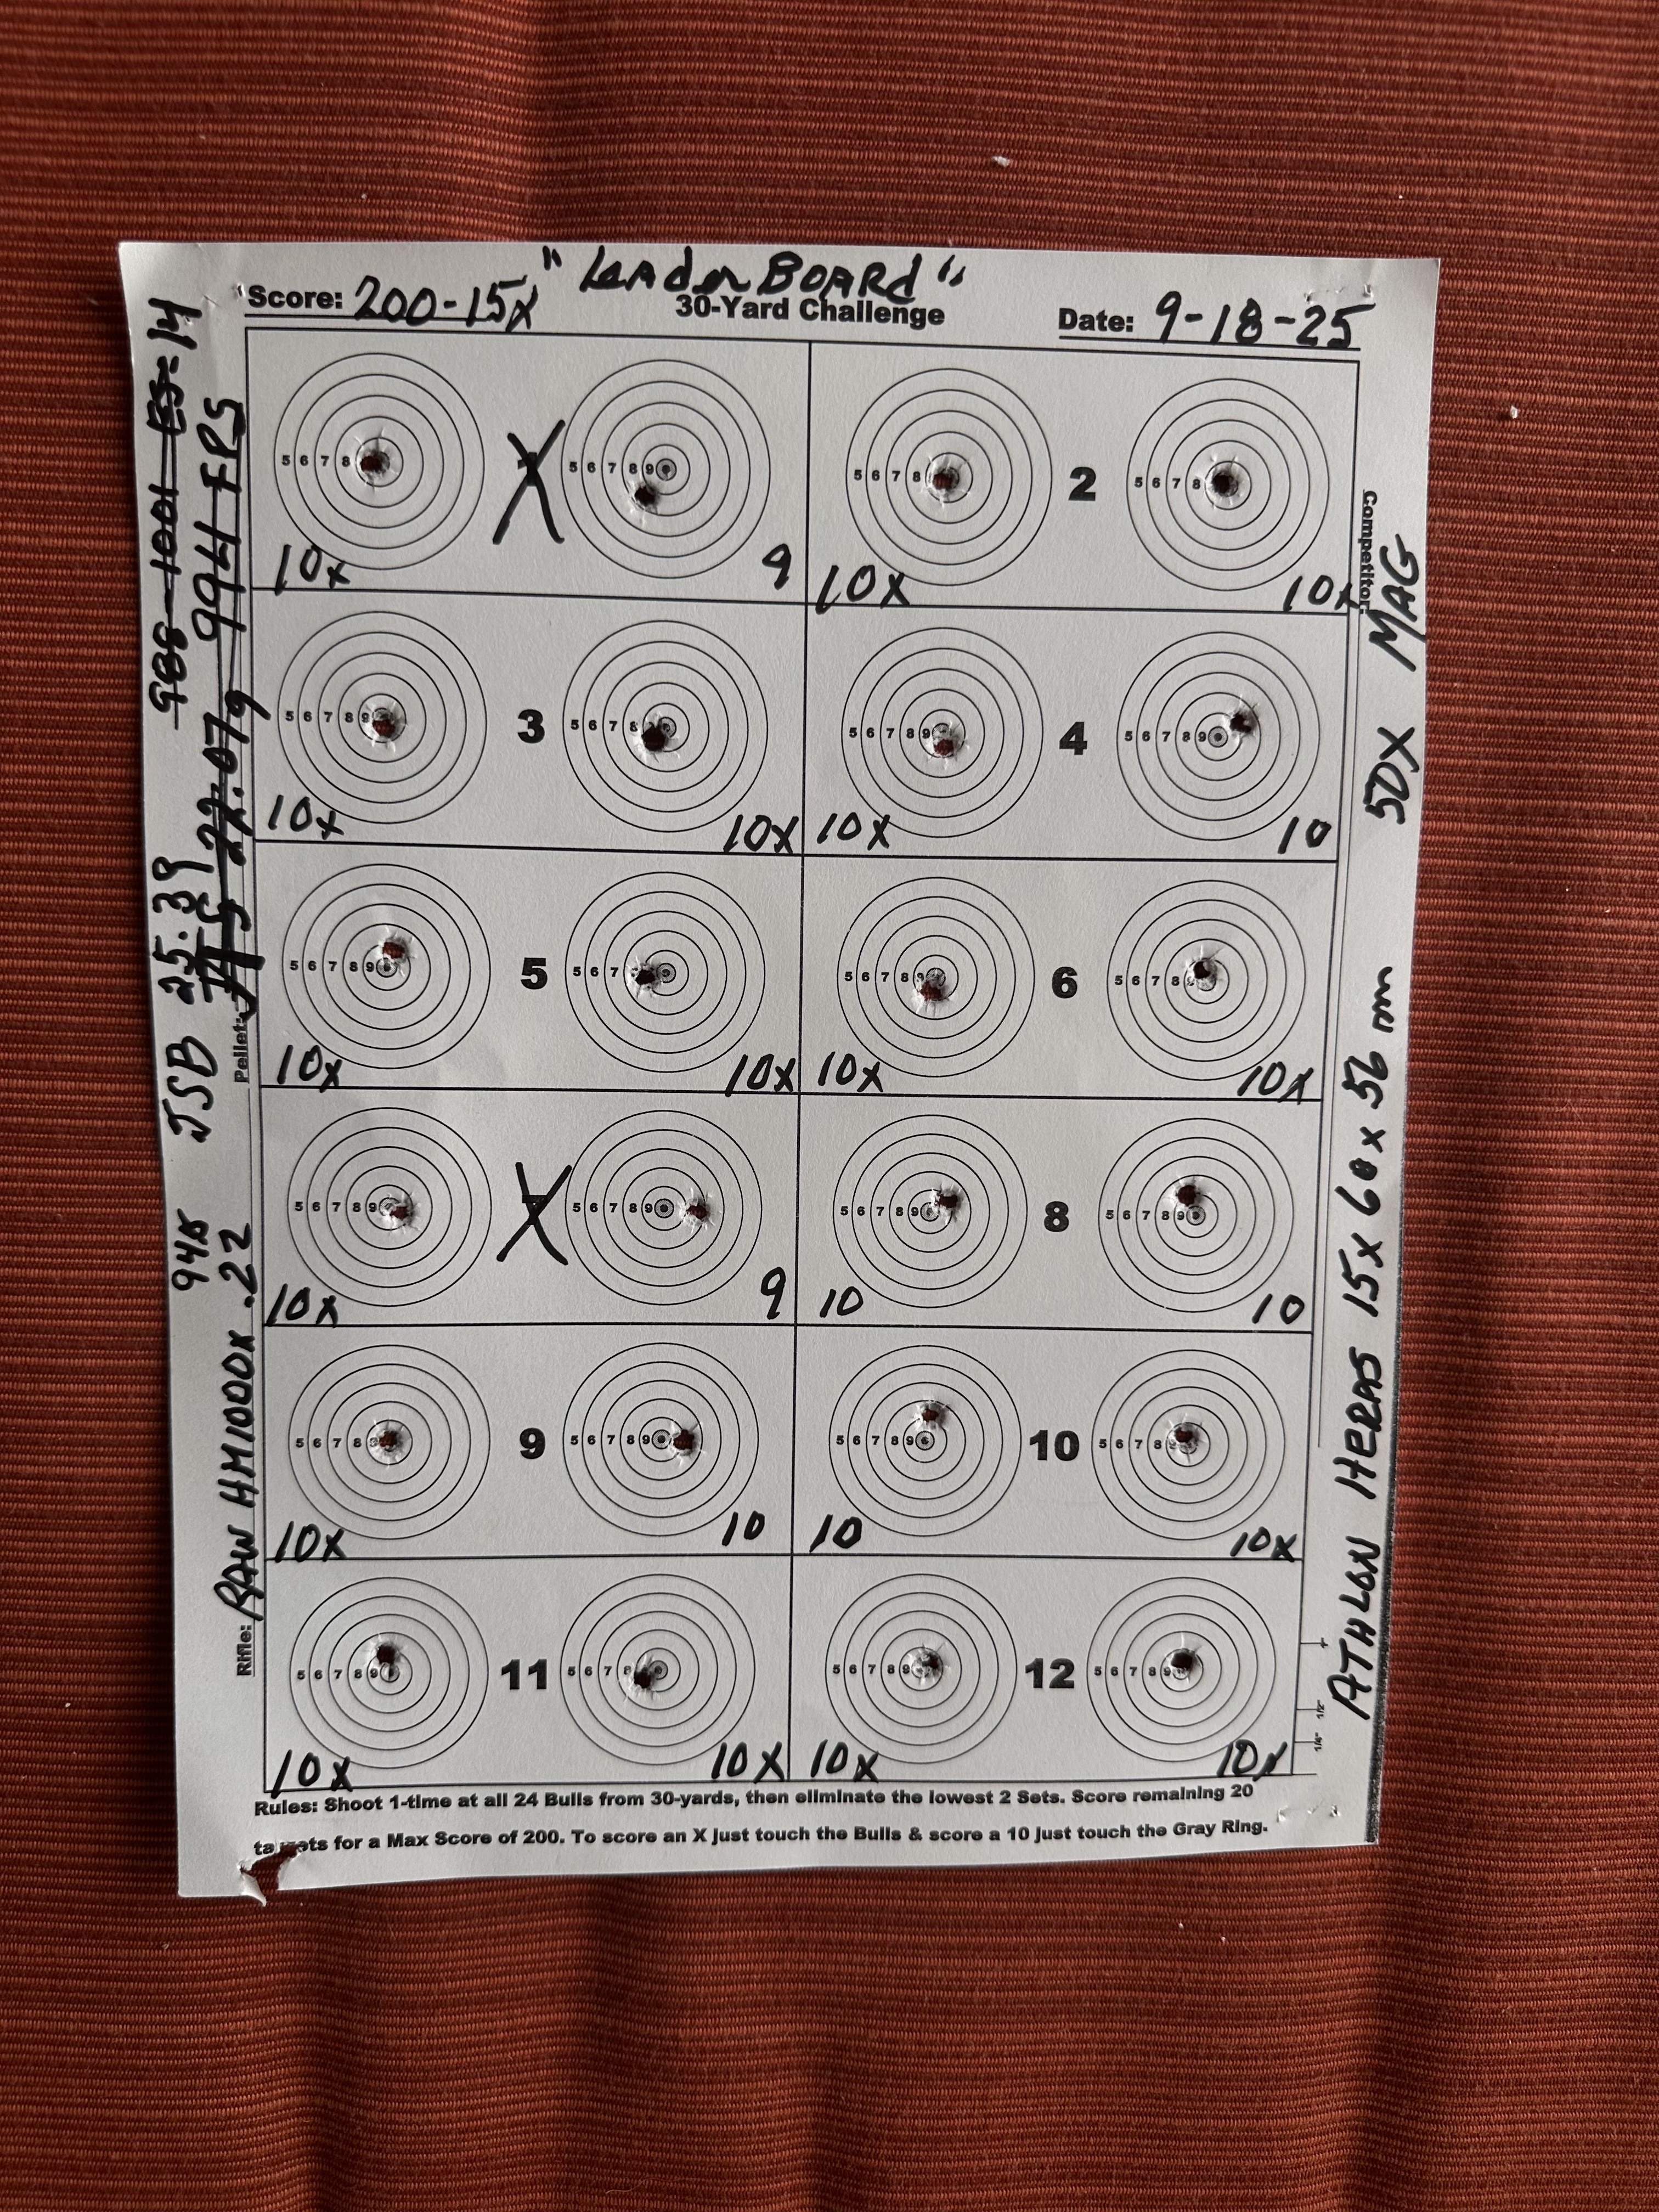 "LeaderBoard"
Score: 200-15X
30-Yard Challenge
Date: 9-18-25
5 6 7 8
5 6 7 8 9
10x
9
5 6 7 8
2
5 6 7 8
10X
10x
5 6 7 8 9
3
5 6 7 8
10x
10X
5 6 7 8 9
4
5 6 7 8 9
10X
10
5 6 7 8 9
5
5 6 7
10x
10X
5 6 7 8 9
6
5 6 7 8
10X
10X
5 6 7 8 9
5 6 7 8 9
10X
9
5 6 7 8 9
8
5 6 7 8 9
10
10
5 6 7 8
9
5 6 7 8 9
10x
10
5 6 7 8 9
10
5 6 7 8
10
10X
5 6 7 8 9
11
5 6 7 8
10X
10X
5 6 7 8 9
12
5 6 7 8 9
10X
10X
Rules: Shoot 1-time at all 24 Bulls from 30-yards, then eliminate the lowest 2 Sets. Score remaining 20
targets for a Max Score of 200. To score an X just touch the Bulls & score a 10 just touch the Gray Ring.
988-1001 ES=14
994 FPS
JSB 25.39
Pellet: 22.07g
945
Rifle: RAW HM1000X .22
Competitor:
ATHLON HERAS 15X60X56mm 50X MAG
1"
1/2"
1/4"